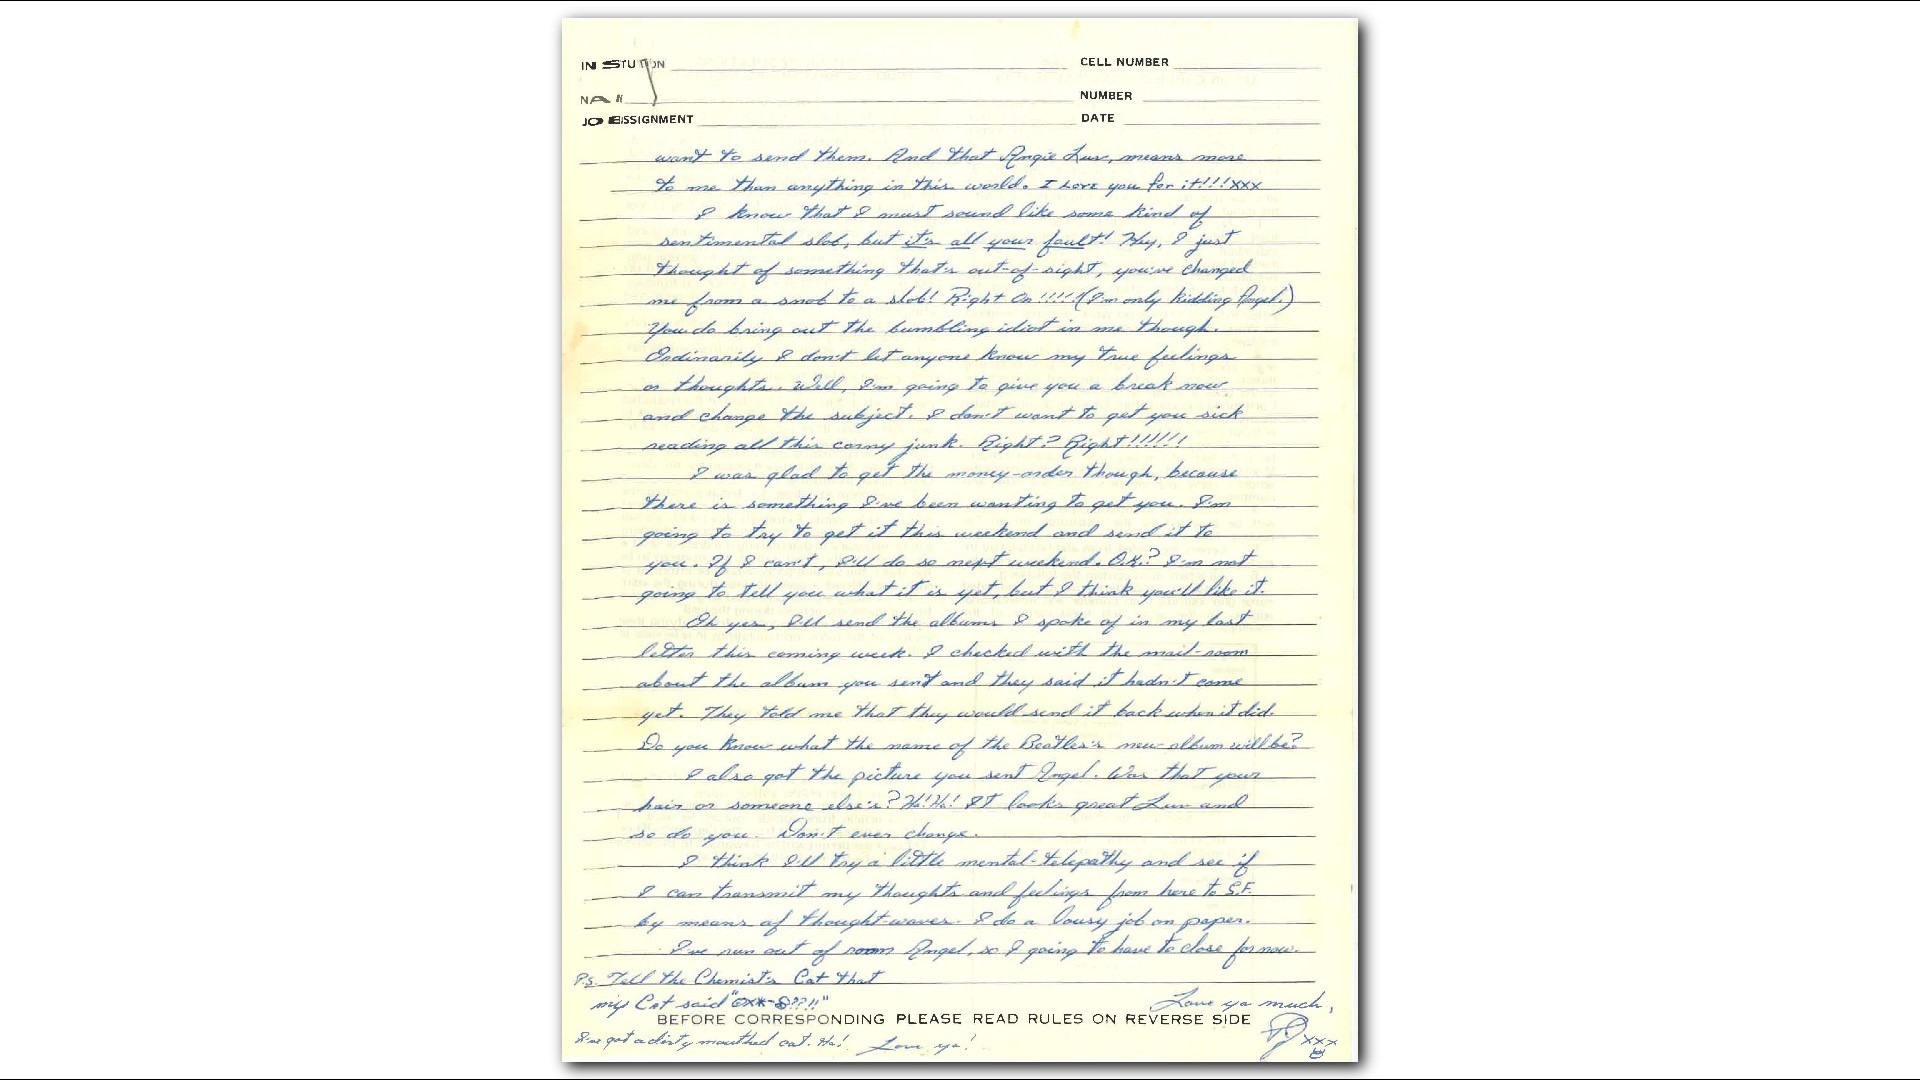 INSTUTION CELL NUMBER
NA NUMBER
JO ESSIGNMENT DATE
want to send them. And that Angie Luv, means more
to me than anything in this world. I Love you for it!!!xxx
I know that I must sound like some kind of
sentimental slob, but it's all your fault! Hey, I just
thought of something that's out-of-sight, you've changed
me from a snob to a slob! Right On!!!!!(I'm only kidding Angel.)
You do bring out the bumbling idiot in me though.
Ordinarily I don't let anyone know my true feelings
or thoughts. Well, I'm going to give you a break now
and change the subject. I don't want to get you sick
reading all this corny junk. Right? Right!!!!!!
I was glad to get the money-order though, because
there is something I've been wanting to get you. I'm
going to try to get it this weekend and send it to
you. If I can't, I'll do so next weekend. O.K.? I'm not
going to tell you what it is yet, but I think you'll like it.
Oh yes, I'll send the albums I spoke of in my last
letter this coming week. I checked with the mail-room
about the album you sent and they said it hadn't come
yet. They told me that they would send it back when it did.
Do you know what the name of the Beatles's new album will be?
I also got the picture you sent Angel. Was that your
hair or someone else's? Ha! Ha! It looks great Luv and
so do you. Don't ever change.
I think I'll try a little mental-telepathy and see if
I can transmit my thoughts and feelings from here to S.F.
by means of thought-waves. I do a lousy job on paper.
I've run out of room Angel, so I going to have to close for now.
P.S. Tell the Chemist's Cat that
my Cat said "
Love ya much,
BEFORE CORRESPONDING PLEASE READ RULES ON REVERSE SIDE
I've got a dirty mouthed cat. Ha! Love ya! xxx